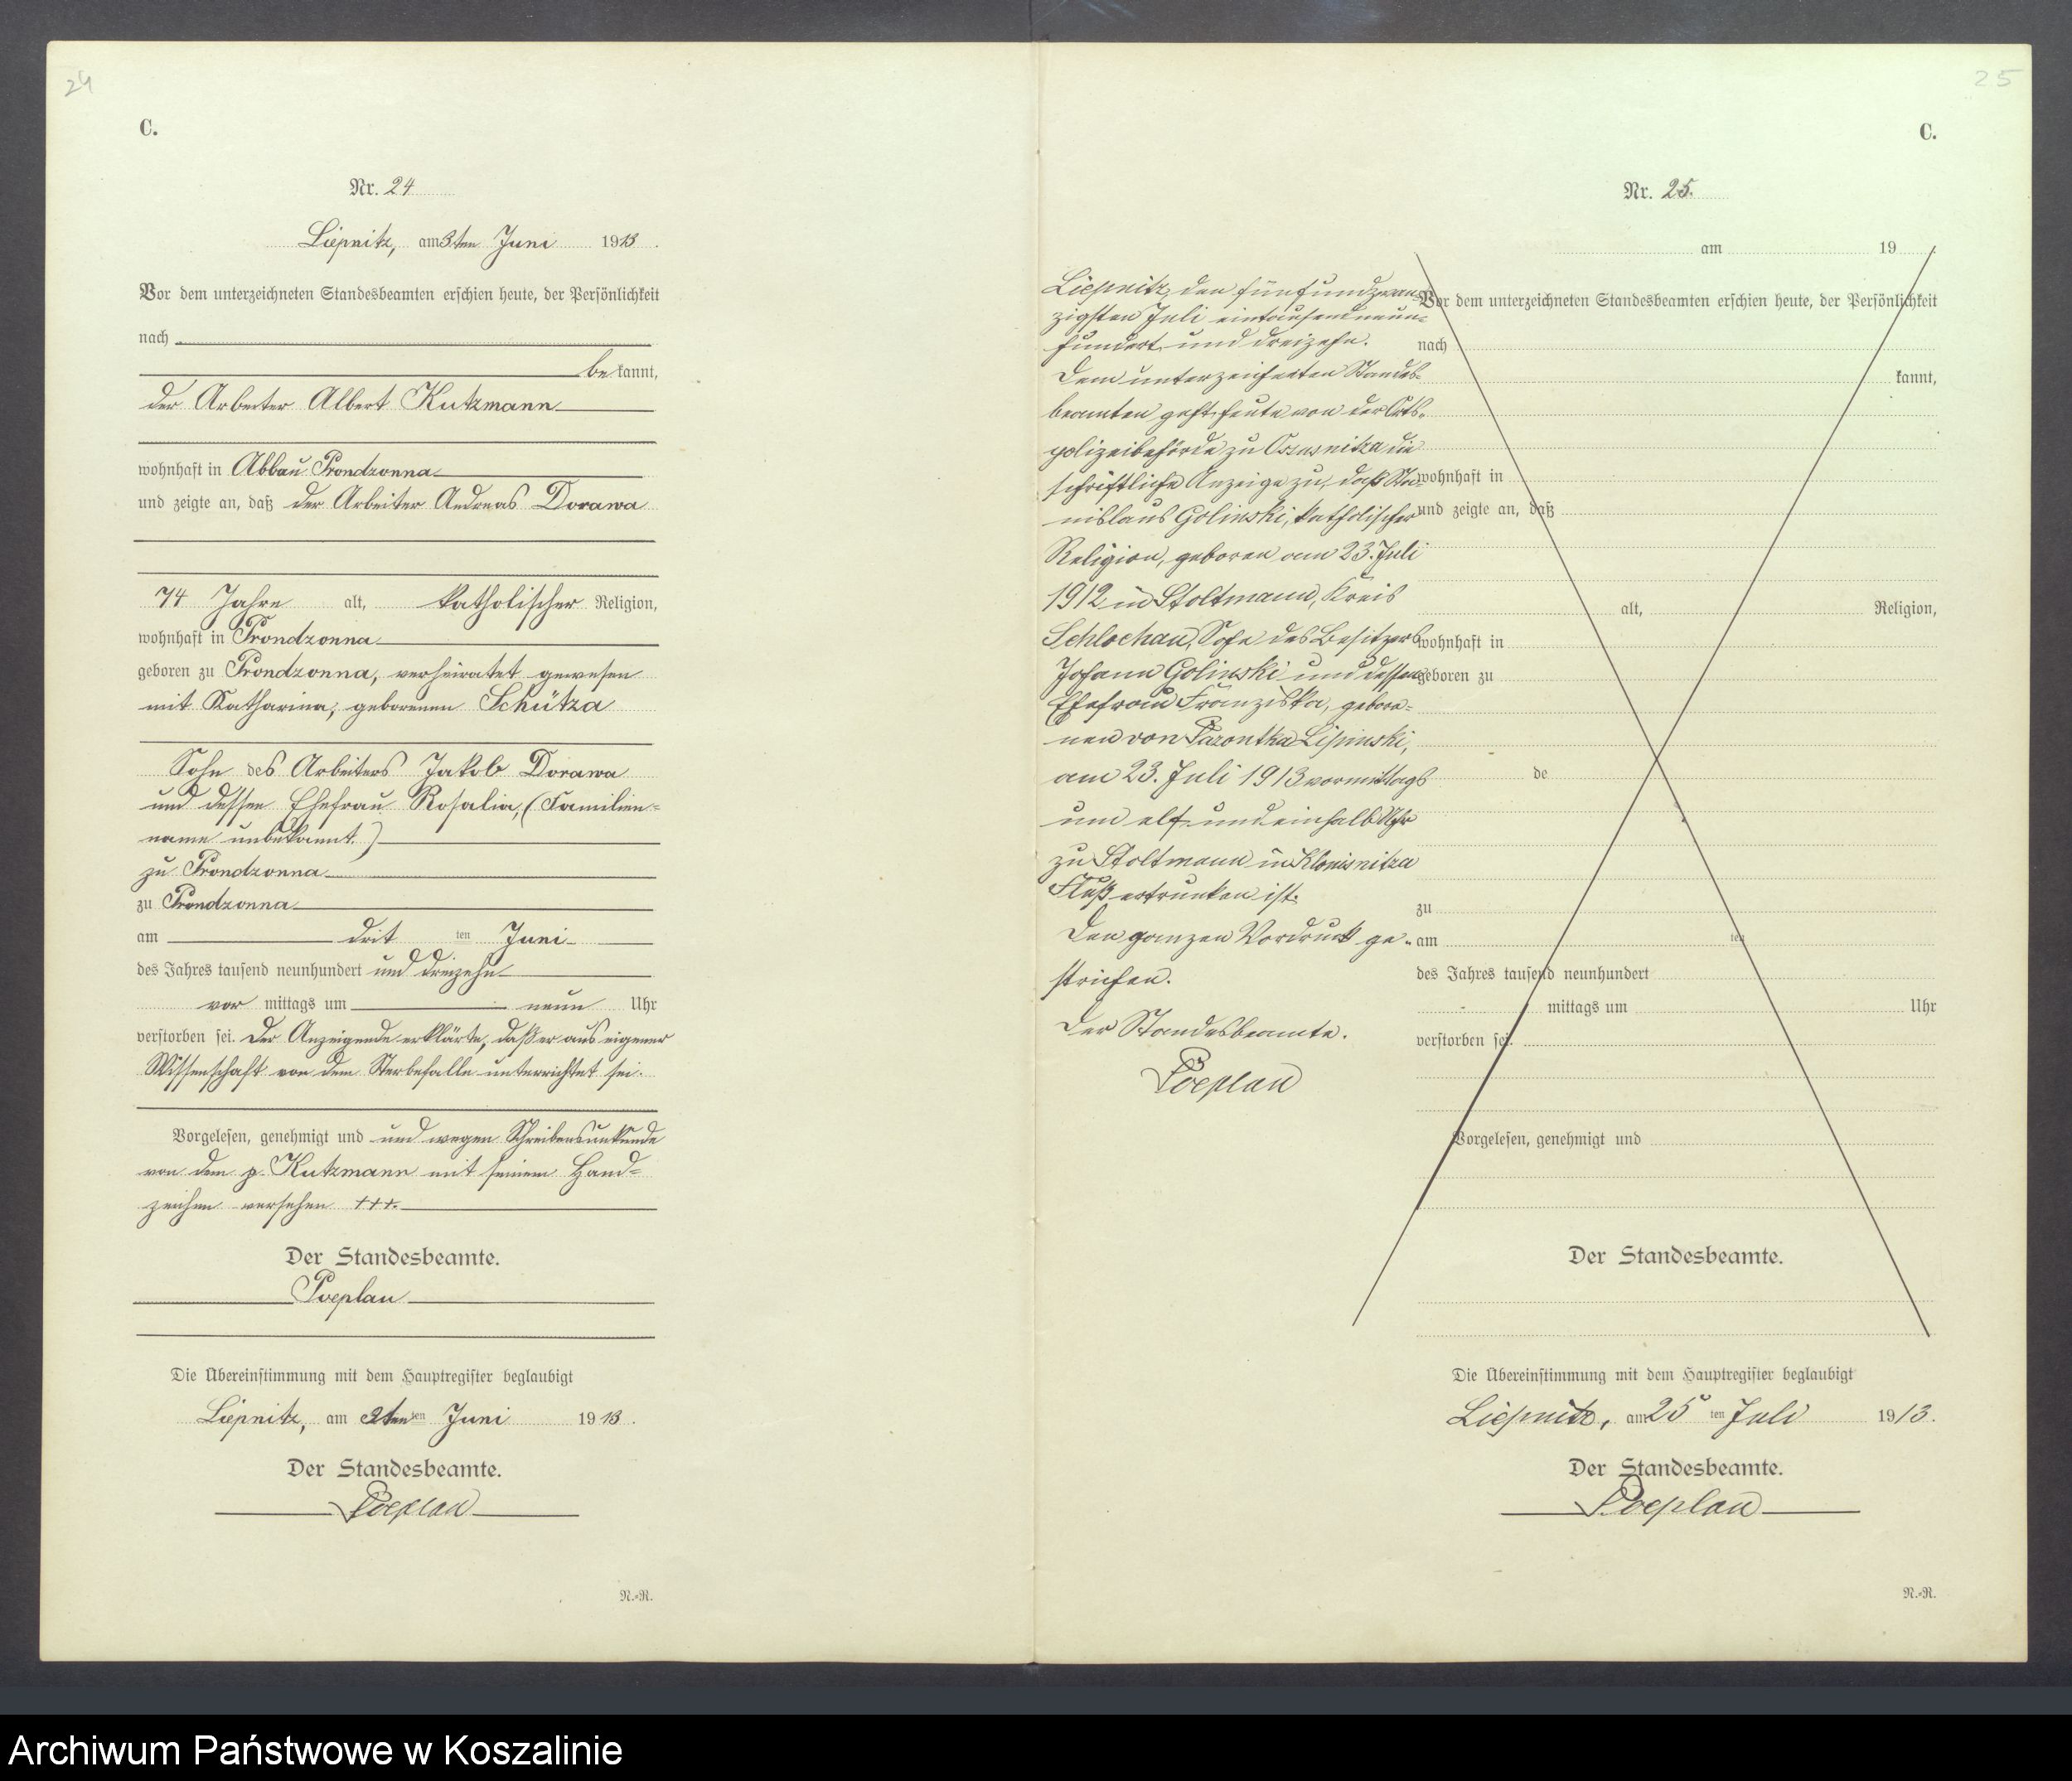 24
C.
Nr. 24
Liepnitz, am 3ten Juni 1913.
Vor dem unterzeichneten Standesbeamten erschien heute, der Persönlichkeit
nach
be kannt,
der Arbeiter Albert Kutzmann
wohnhaft in Abbau Prondzonna
und zeigte an, daß der Arbeiter Andreas Dorawa
74 Jahre alt, katholischer Religion,
wohnhaft in Prondzonna
geboren zu Prondzonna, verheiratet gewesen
mit Katharina, geborenen Schütza
Sohn des Arbeiters Jakob Dorawa
und dessen Ehefrau Rosalia, (Familien-
name unbekannt.)
zu Prondzonna
zu Prondzonna
am drit ten Juni
des Jahres tausend neunhundert und dreizehn
vor mittags um neun Uhr
verstorben sei. Der Anzeigende erklärte, daß er aus eigener
Wissenschaft von dem Sterbefalle unterrichtet sei.
Vorgelesen, genehmigt und und wegen Schreibensunkunde
von dem p. Kutzmann mit seinem Hand-
zeichen versehen +++.
Der Standesbeamte.
Poeplau
Die Übereinstimmung mit dem Hauptregister beglaubigt
Liepnitz, am ten Juni 1913.
Der Standesbeamte.
Poeplau
N.-N.
25
C.
Nr. 25.
am 19
Liepnitz, den fünfundzwan-
zigsten Juli eintausendneun-
hundert und dreizehn.
Dem unterzeichneten Standes-
beamten geht heute von der Orts-
polizeibehörde zu die
schriftliche Anzeige zu, daß Sta-
nislaus Golinski, katholischer
Religion, geboren am 23. Juli
1912 in Stoltmann, Kreis
Schlochau, Sohn des Besitzers
Johann Golinski und dessen
Ehefrau Franziska, gebore-
nen von Lipinski,
am 23. Juli 1913 vormittags
um elf und einhalb Uhr
zu Stoltmann im
Fluß ertrunken ist.
Den ganzen Vordruck ge-
strichen.
Der Standesbeamte.
Poeplau
Vor dem unterzeichneten Standesbeamten erschien heute, der Persönlichkeit
nach
kannt,
wohnhaft in
und zeigte an, daß
alt, Religion,
wohnhaft in
geboren zu
de
zu
am ten
des Jahres tausend neunhundert
mittags um Uhr
verstorben sei.
Vorgelesen, genehmigt und
Der Standesbeamte.
Die Übereinstimmung mit dem Hauptregister beglaubigt
Liepnitz, am 25 ten Juli 1913.
Der Standesbeamte.
Poeplau
N.-N.
Archiwum Państwowe w Koszalinie